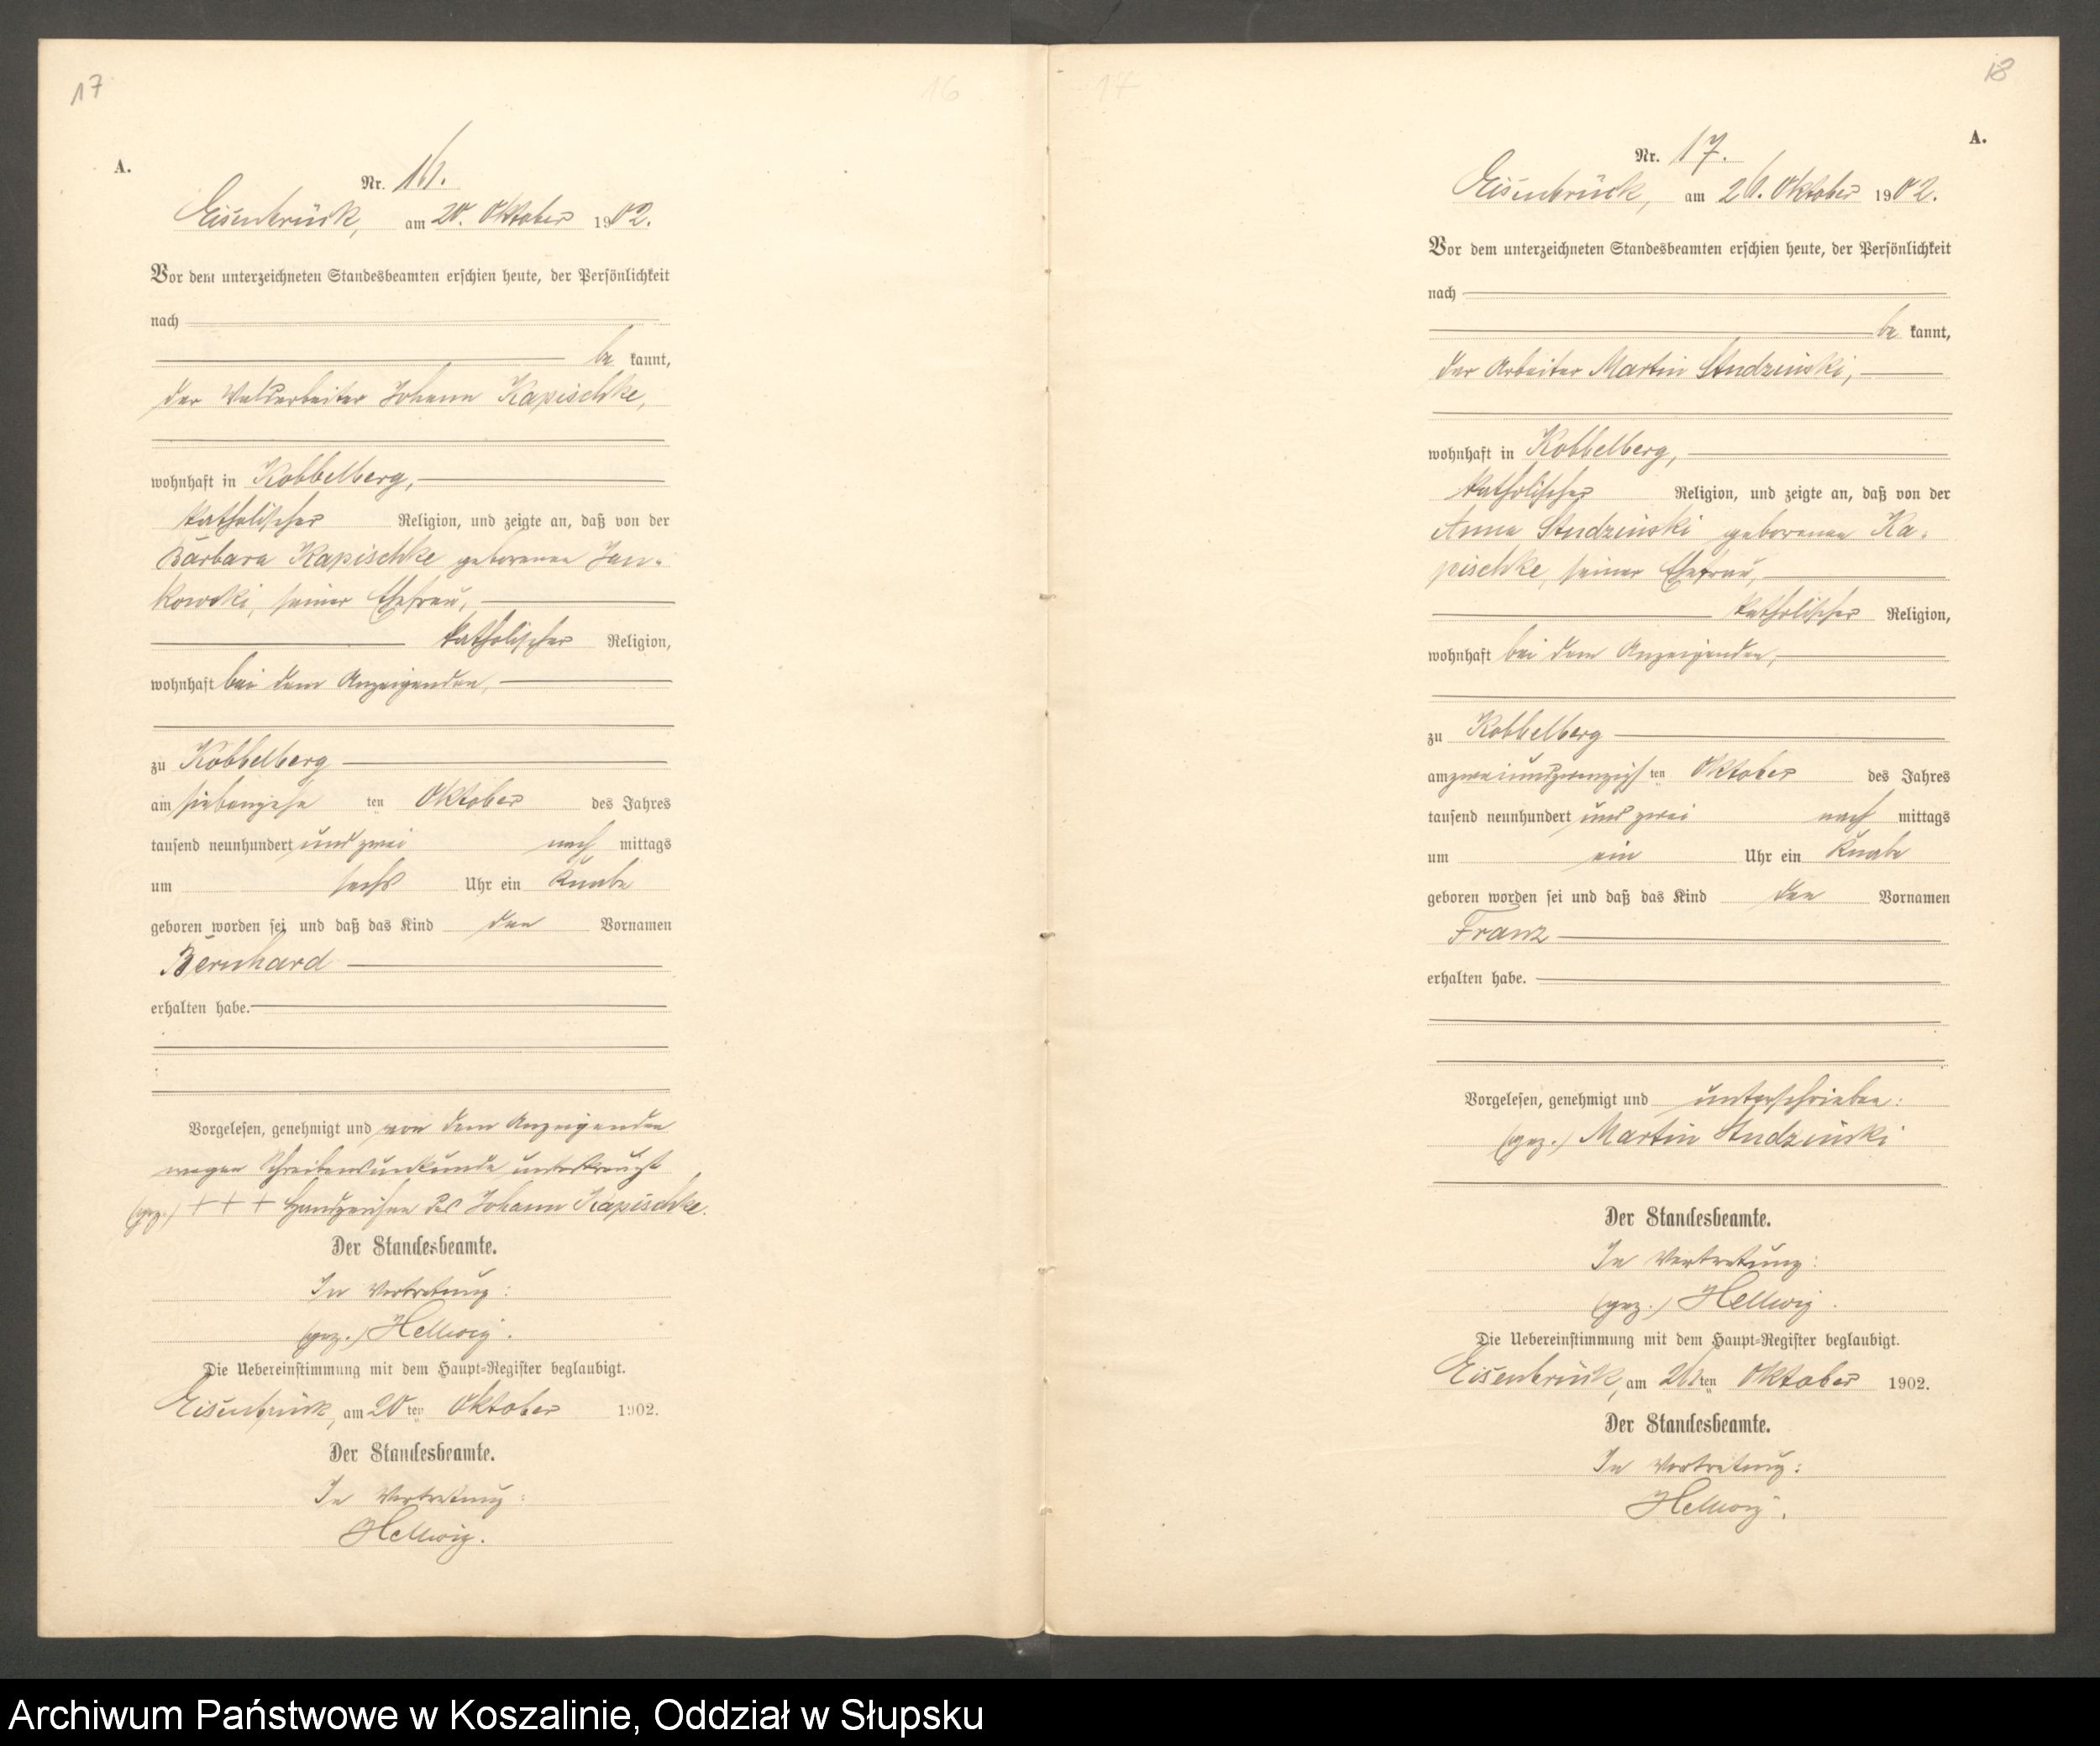 17
16
A.
Nr. 16.
Eisenbrück, am 20. Oktober 1902.
Vor dem unterzeichneten Standesbeamten erschien heute, der Persönlichkeit
nach
be kannt,
der Waldarbeiter Johann Kapischke,
wohnhaft in Kobbelberg,
katholischer Religion, und zeigte an, daß von der
Barbara Kapischke geborenen Jan-
kowski, seiner Ehefrau,
katholischer Religion,
wohnhaft bei dem Anzeigenden,
zu Kobbelberg
am siebenzehn ten Oktober des Jahres
tausend neunhundert und zwei nach mittags
um sechs Uhr ein Knabe
geboren worden sei und daß das Kind den Vornamen
Bernhard
erhalten habe.
Vorgelesen, genehmigt und von dem Anzeigenden
wegen Schreibensunkunde unterkreuzt
(gez.) + + + Handzeichen des Johann Kapischke.
Der Standesbeamte.
In Vertretung:
(gez.) Hellwig.
Die Uebereinstimmung mit dem Haupt-Register beglaubigt.
Eisenbrück, am 20ten Oktober 1902.
Der Standesbeamte.
In Vertretung:
Hellwig.
17
18
A.
Nr. 17.
Eisenbrück, am 26. Oktober 1902.
Vor dem unterzeichneten Standesbeamten erschien heute, der Persönlichkeit
nach
be kannt,
der Arbeiter Martin Studzinski,
wohnhaft in Kobbelberg,
katholischer Religion, und zeigte an, daß von der
Anna Studzinski geborenen Ka-
pischke, seiner Ehefrau,
katholischer Religion,
wohnhaft bei dem Anzeigenden,
zu Kobbelberg
am zweiundzwanzigs ten Oktober des Jahres
tausend neunhundert und zwei nach mittags
um ein Uhr ein Knabe
geboren worden sei und daß das Kind den Vornamen
Franz
erhalten habe.
Vorgelesen, genehmigt und unterschrieben:
(gez.) Martin Studzinski
Der Standesbeamte.
In Vertretung:
(gez.) Hellwig.
Die Uebereinstimmung mit dem Haupt-Register beglaubigt.
Eisenbrück, am 26ten Oktober 1902.
Der Standesbeamte.
In Vertretung:
Hellwig.
Archiwum Państwowe w Koszalinie, Oddział w Słupsku